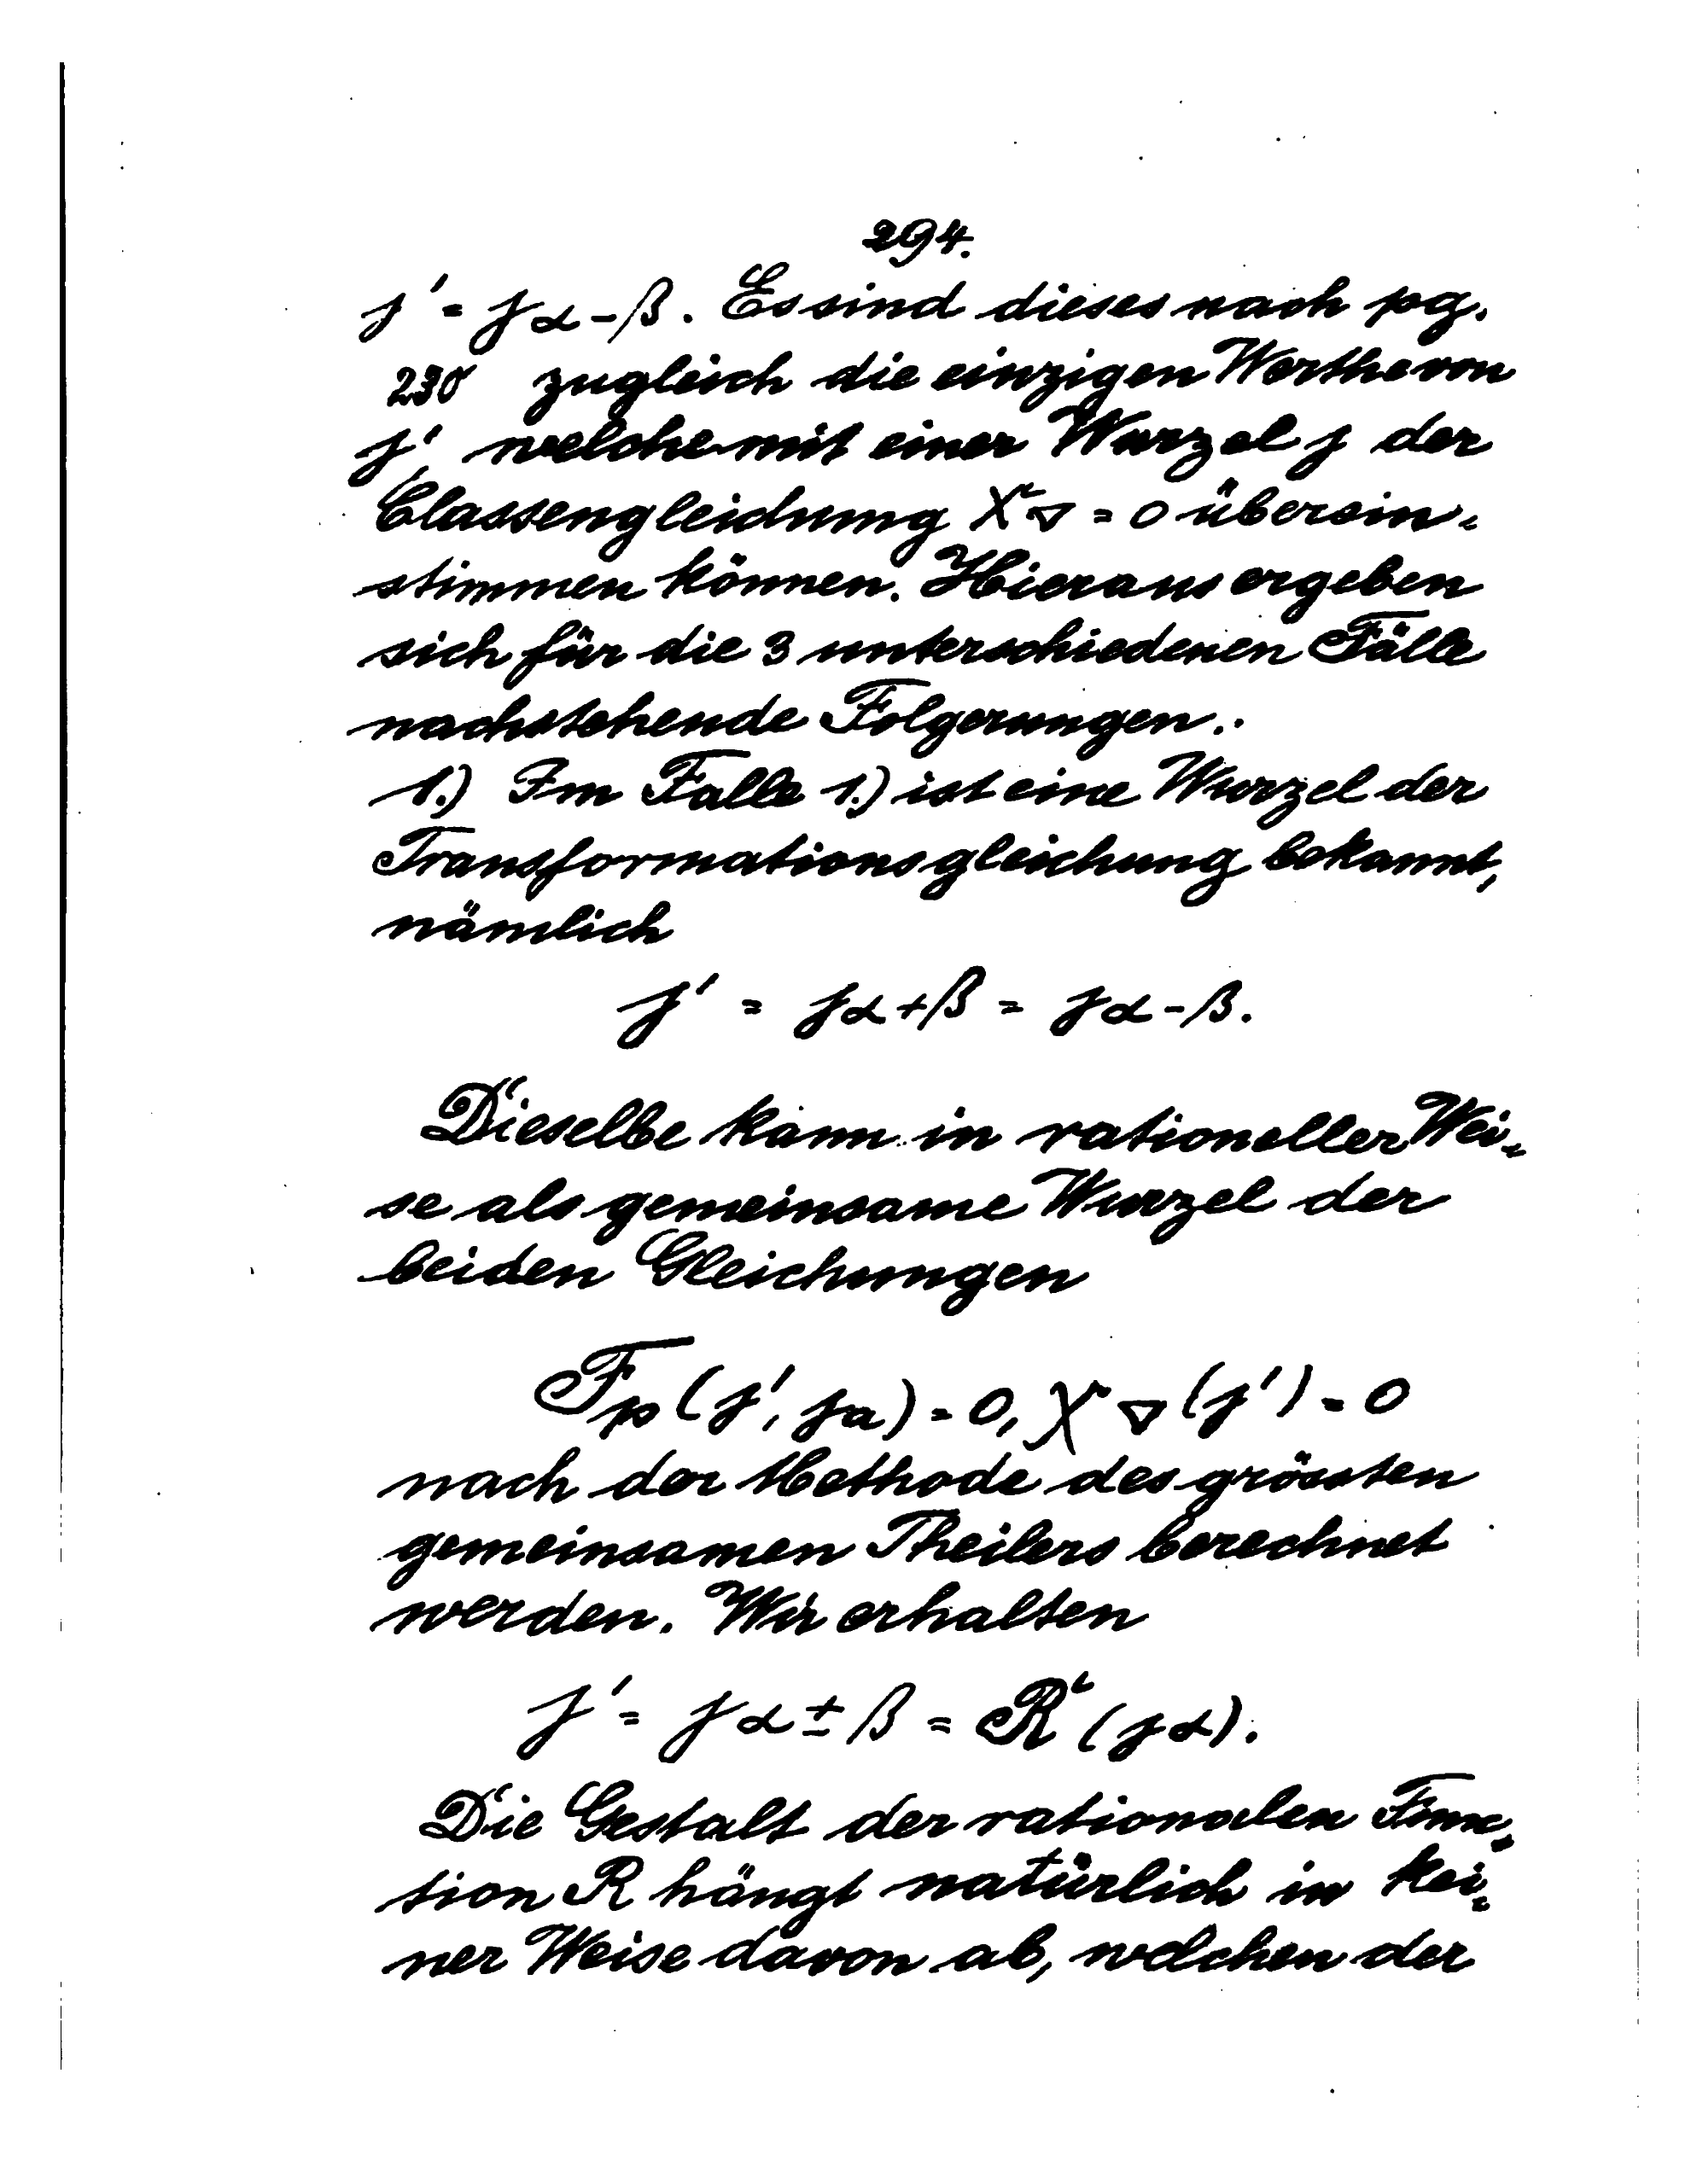 294.
j' = jα-β. Es sind dieses nach pg.
230 zugleich die einzigen Werthe von
j', welche mit einer Wurzel j der
Classengleichung X^r ∇ = 0 überein-
stimmen können. Hieraus ergeben
sich für die 3 unterschiedenen Fälle
nachstehende Folgerungen:
1.) Im Falle 1.) ist eine Wurzel der
Transformationsgleichung bekannt,
nämlich
j' = jα+β = jα-β.
Dieselbe kann in rationeller Wei-
se als gemeinsame Wurzel der
beiden Gleichungen
Fp (j', ja) = 0, X^r ∇ (j') = 0
nach der Methode des grössten
gemeinsamen Theilers berechnet
werden. Wir erhalten
j' = jα±β = R^r (jα).
Die Gestalt der rationalen Func-
tion R hängt natürlich in kei-
ner Weise davon ab, welchen der